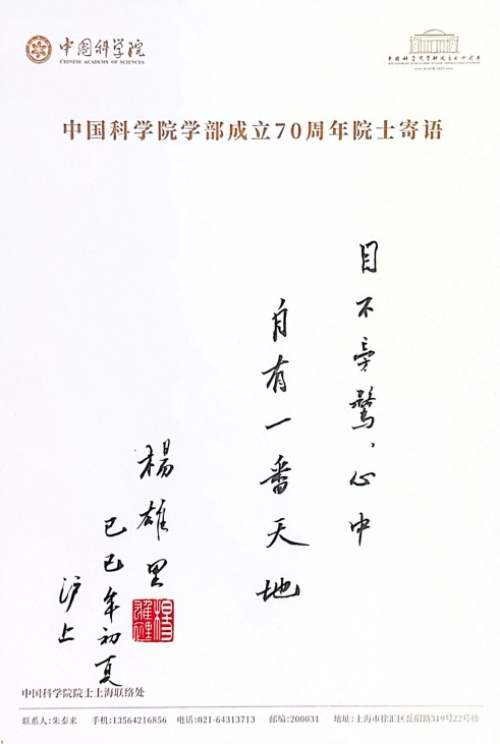 中国科学院
CHINESE ACADEMY OF SCIENCES
中国科学院学部成立七十周年
SINCE 1955
中国科学院学部成立70周年院士寄语
目不旁鹜，心中
自有一番天地
杨雄里
己巳年初夏
沪上
杨雄里
中国科学院院士上海联络处
联系人:朱泰来 手机:13564216856 电话:021-64313713 邮编:200031 地址:上海市徐汇区岳阳路319号22号楼